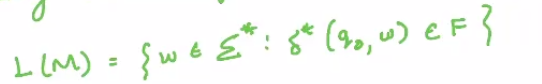 L(M) = { w ∈ Σ* : δ* (q₀, w) ∈ F }